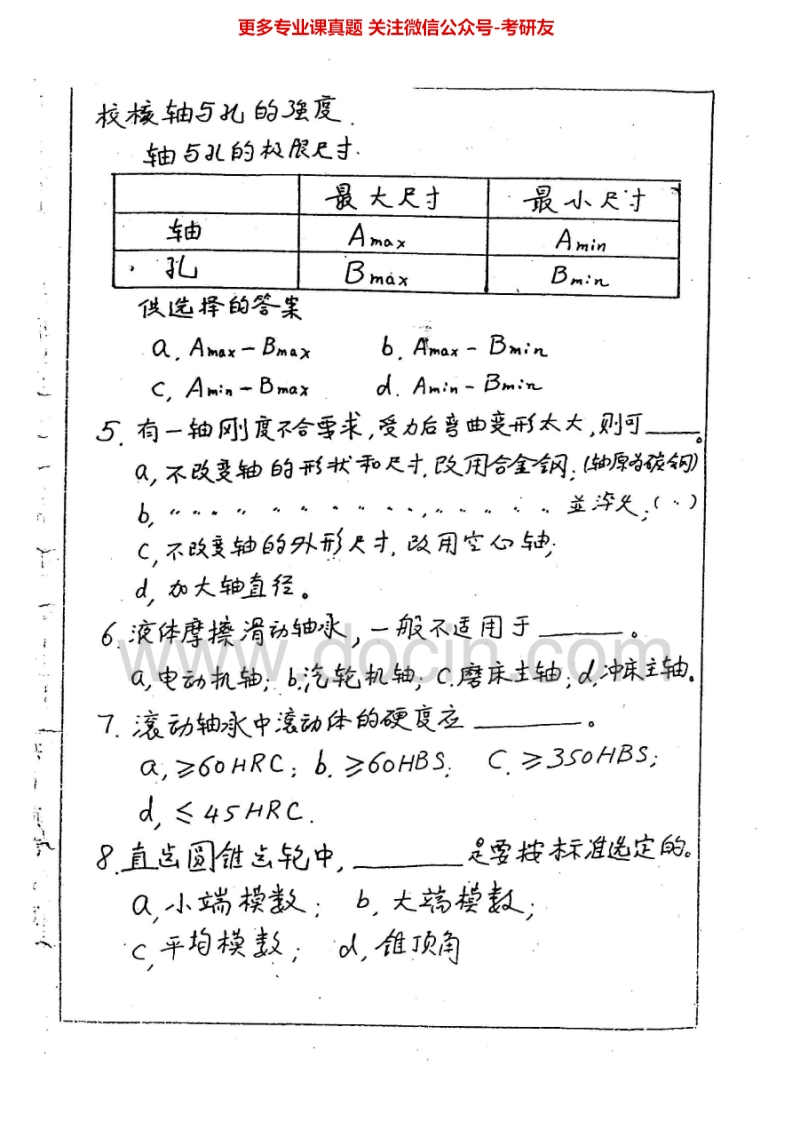 更多专业课真题 关注微信公众号-考研友
校核轴与孔的强度.
轴与孔的极限尺寸.
最大尺寸 最小尺寸
轴 Amax Amin
孔 Bmax Bmin
供选择的答案
a, Amax - Bmax b. Amax - Bmin
c, Amin - Bmax d. Amin - Bmin
5. 有一轴刚度不合要求,受力后弯曲变形太大,则可____。
a, 不改变轴的形状和尺寸,改用合金钢;(轴原为碳钢)
b, 〃 〃 〃 〃 〃 〃 〃 〃 〃 〃, 〃 〃 〃 〃 〃 並淬火;(〃)
c, 不改变轴的外形尺寸,改用空心轴;
d, 加大轴直径。
6. 液体摩擦滑动轴承,一般不适用于____。
www.docin.com
a, 电动机轴; b, 汽轮机轴; c. 磨床主轴; d, 冲床主轴.
7. 滚动轴承中滚动体的硬度应____。
a, ≥60HRC; b. ≥60HBS; c. ≥350HBS;
d, ≤45HRC.
8. 直齿圆锥齿轮中,____是要按标准选定的。
a, 小端模数; b, 大端模数;
c, 平均模数; d, 锥顶角